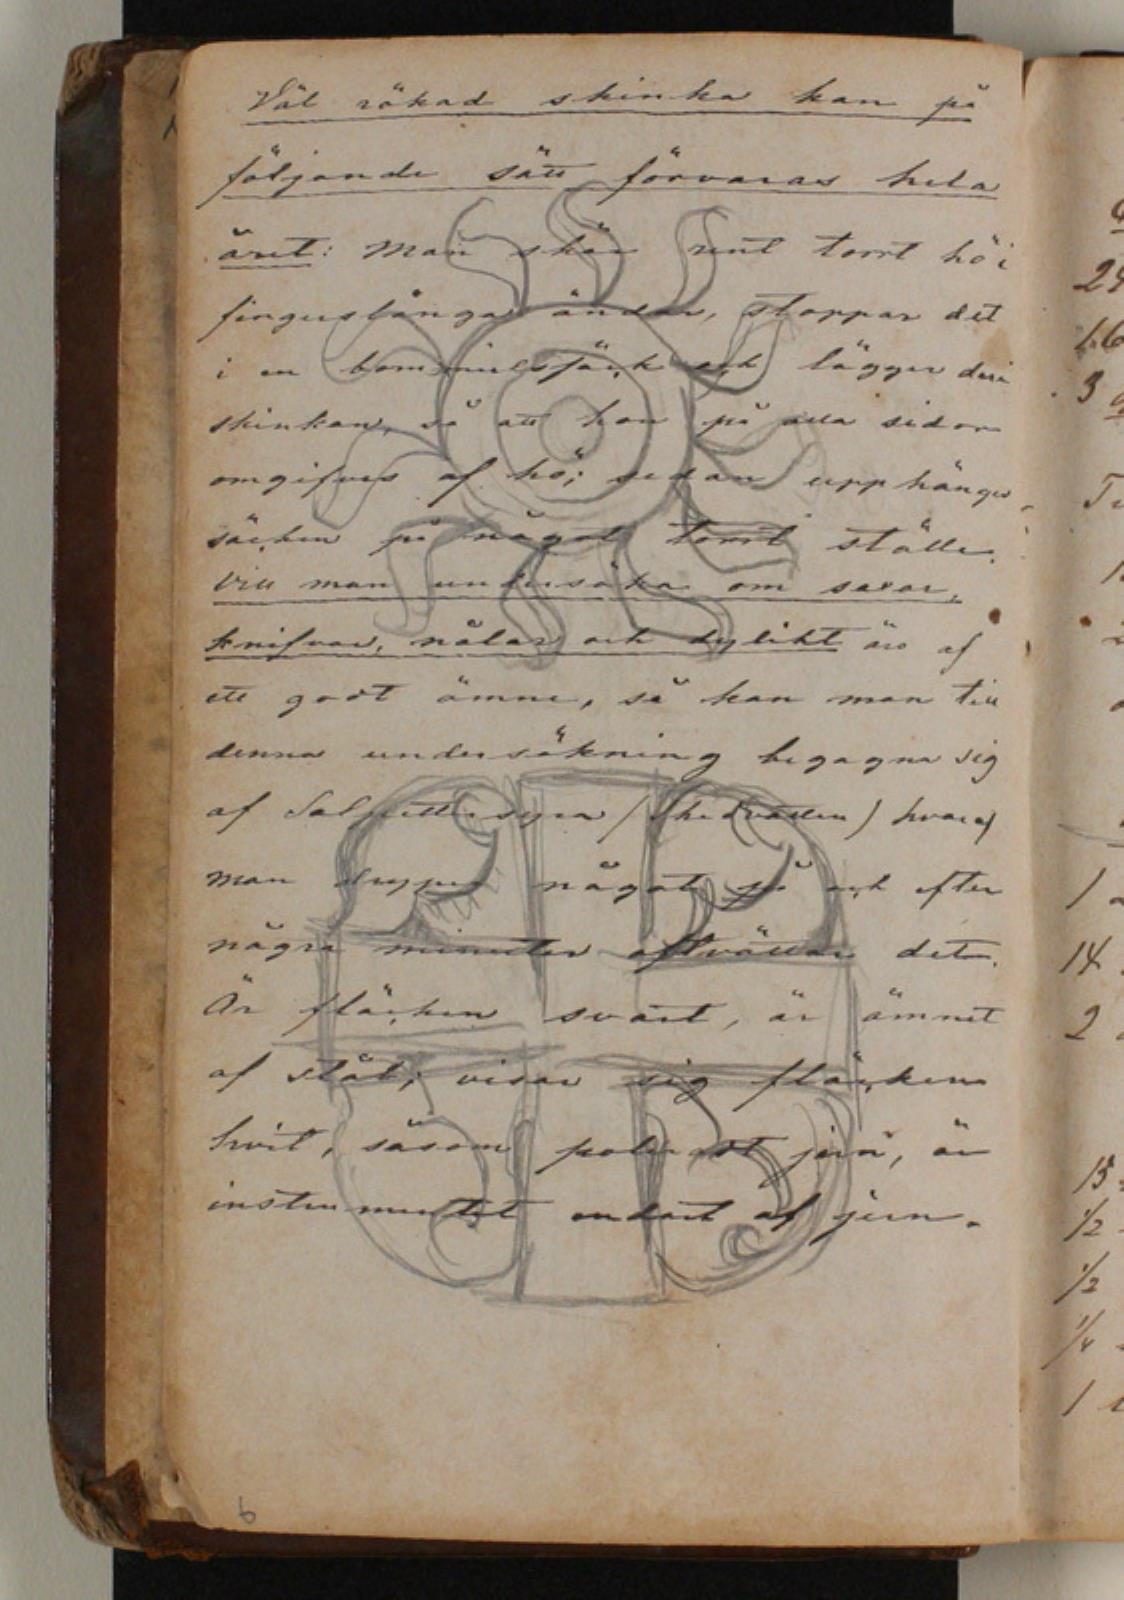 Väl rökad skinka kan på
följande sätt förvaras hela
året: Man skär rent torrt hö i
fingerslånga ändar, stoppar det
i en bomullssäck och lägger deri
skinkan, så att hon på alla sidor
omgifves af hö; sedan upphänges
säcken på något torrt ställe.
Vill man undersöka om saxar,
knifvar, nålar och dylikt äro af
ett godt ämne, så kan man till
denna undersökning begagna sig
af Salpetersyra / (skedvatten) hvaraf
man dryper något på och efter
några minuter aftvättar det.
Är fläcken svart, är ämnet
af stål; visar sig fläcken
hvit, såsom polerat jern, är
instrumentet endast af jern.
6
24
16
3
1
14
2
15
1/2
1/2
1/4
1